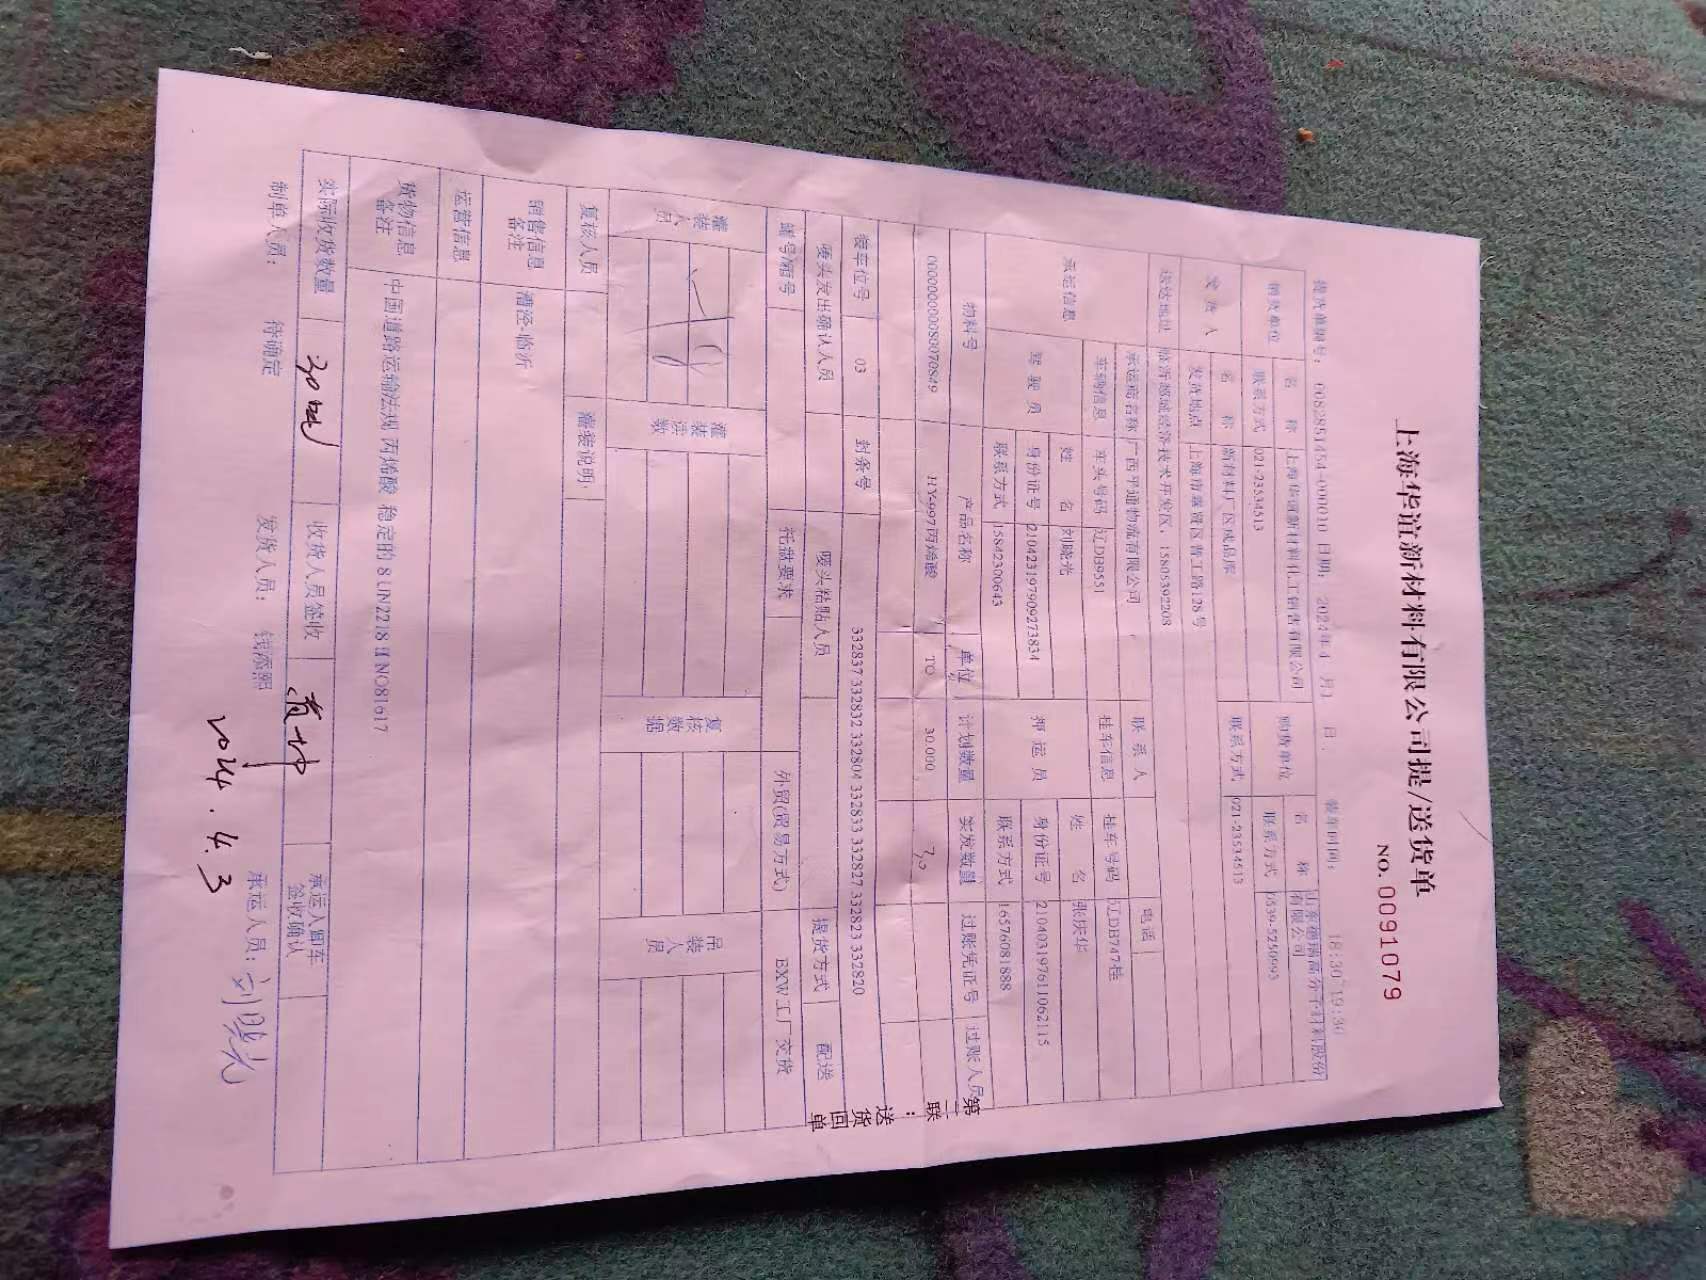 上海华谊新材料有限公司提/送货单
NO. 0091079
提货单编号: 0082851454-000010 日期: 2024年4 月1 日 装车时间: 18:30/19:30
销货单位 名 称 上海华谊新材料化工销售有限公司 购货单位 名 称 有限公司
联系方式 021-23534513 联系方式 0539-5250993
发 货 人 名 称 新材料厂区成品库 联系方式 021-23534513
发货地点 上海市奉贤区普工路128号
送达地址 临沂郯城经济技术开发区, 15805392208
承运信息 承运商名称 广西平通物流有限公司 联 系 人 电话
车辆信息 车头号码 辽DB9551 挂车信息 挂车号码 辽DB747挂
驾 驶 员 姓 名 刘晓光 押 运 员 姓 名 张庆华
身份证号 210423197909273834 身份证号 210403197611062115
联系方式 15842300643 联系方式 16576081888
物料号 产品名称 单位 计划数量 实发数量 过账凭证号 过账人员
000000000080070849 HY-997丙烯酸 TO 30.000 30
装车位号 03 封条号 332837 332832 332804 332833 332827 332823 332820
唛头发出确认人员 唛头粘贴人员 提货方式 配送
罐号/箱号 托盘要求 外贸(贸易方式) EXW工厂交货
灌装人员 灌装涂数 复核数据 吊装人员
复核人员 灌装说明:
销售信息备注 漕泾-临沂
运营信息
货物信息备注 中国道路运输法规 丙烯酸 稳定的 8 UN2218 II NO81617
实际收货数量 30吨 收货人员签收 承运人卸车签收确认
制单人员: 待确定 发货人员: 钱添熙 承运人员: 刘晓光
2024.4.3
第二联:送货回单